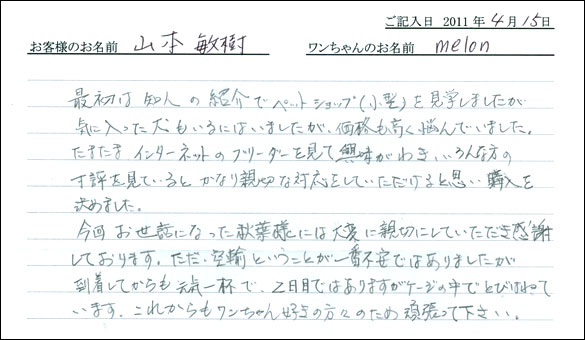 ご記入日 2011年4月15日
お客様のお名前 山本敏樹 ワンちゃんのお名前 melon
最初は知人の紹介でペットショップ(小型)を見学しましたが
気に入った犬もいるにはいましたが、価格も高く悩んでいました。
たまたまインターネットのブリーダーを見て興味がわき、いろんな方の
寸評を見ているとかなり親切な対応をしていただけると思い購入を
決めました。
今回お世話になった秋葉様には大変に親切にしていただき感謝
しております。ただ、空輸ということが一番不安ではありましたが
到着してからも元気一杯で、2日目ではありますがケージの中でとびはねて
います。これからもワンちゃん好きの方々のため頑張って下さい。